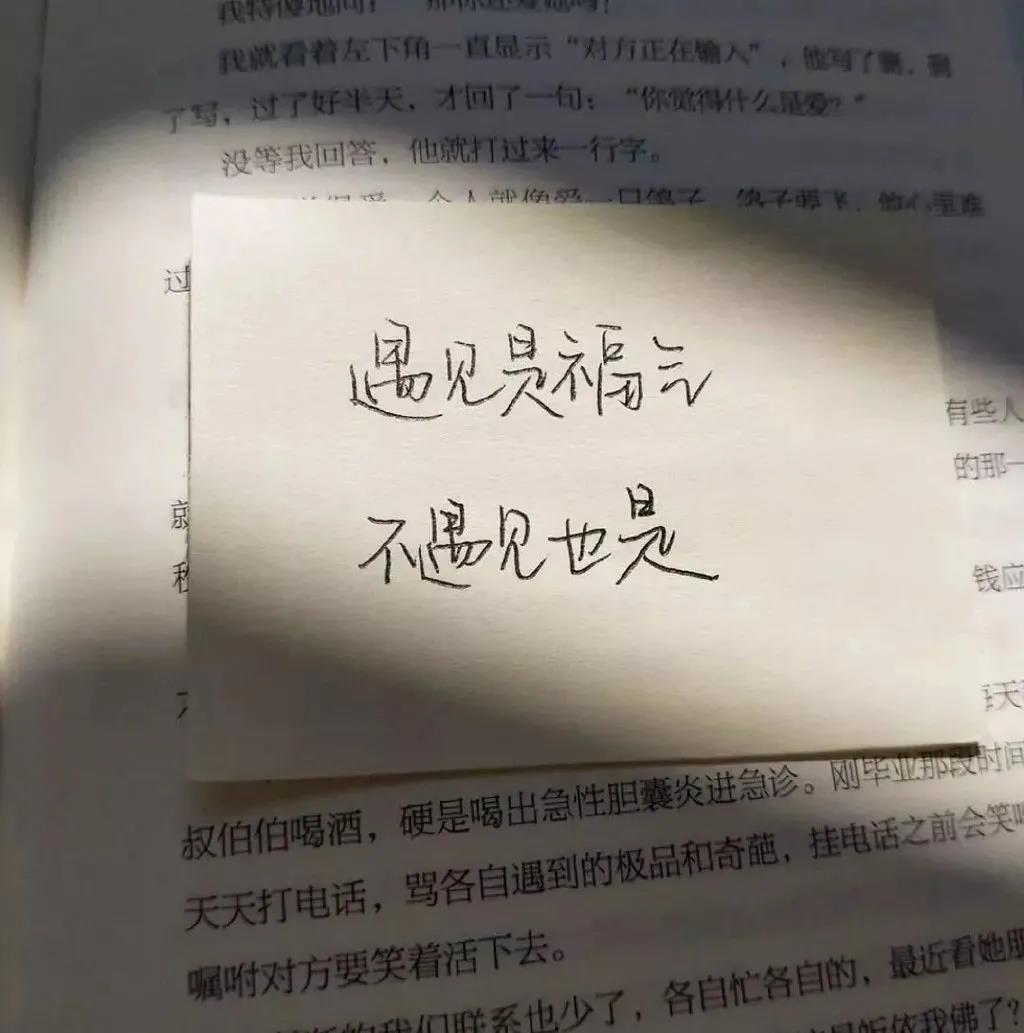 我特傻地问：“那你还爱她吗？
我就看着左下角一直显示“对方正在输入”，他写了删，删
了写，过了好半天，才回了一句：“你觉得什么是爱？”
没等我回答，他就打过来一行字。
个人就像爱一只鸽子，鸽子要飞，他心里难
过
遇见是福气
不遇见也是
有些人
的那一
就
钱应
天天
叔伯伯喝酒，硬是喝出急性胆囊炎进急诊。刚毕业那段时间
天天打电话，骂各自遇到的极品和奇葩，挂电话之前会笑
嘱咐对方要笑着活下去。
的我们联系也少了，各自忙各自的，最近看她朋
皈依我佛了？